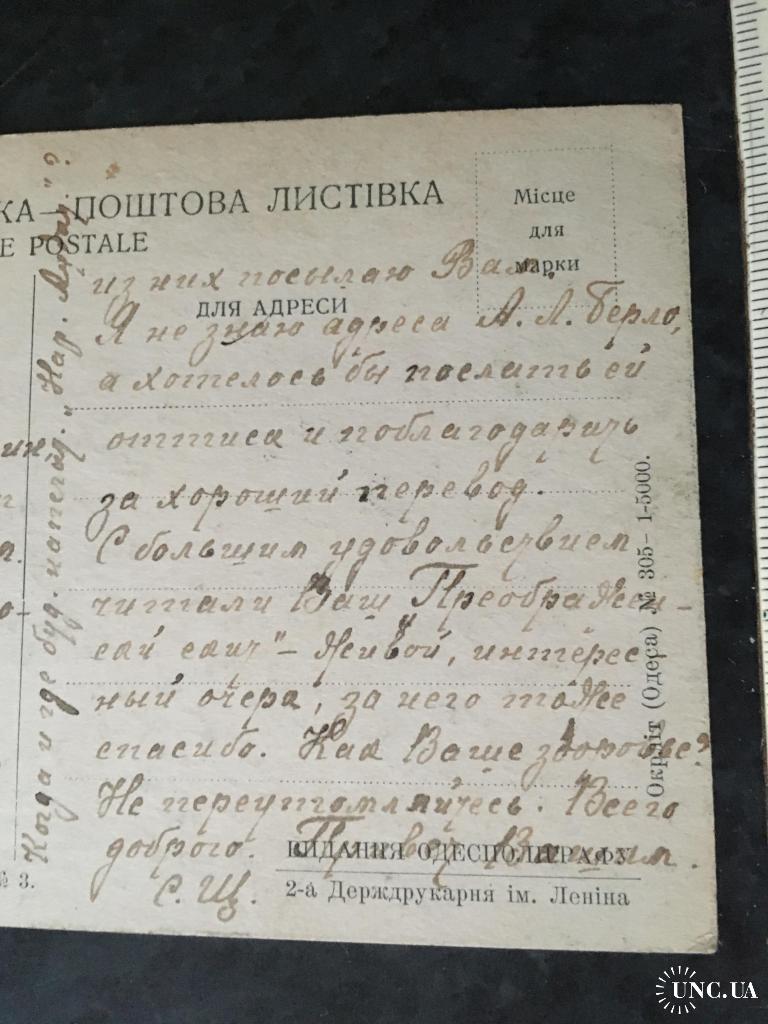 КА — ПОШТОВА ЛИСТІВКА
E POSTALE
Місце
для
марки
ДЛЯ АДРЕСИ
из них посылаю Вам.
Я не знаю адреса А. Л. Берло,
а хотелось бы послать ей
оттиск и поблагодарить
за хороший перевод.
С большим удовольствием
читали Ваш „Преображен-
ский скит" – живой, интерес
ный очерк, за него тоже
спасибо. Как Ваше здоровье?
Не переутомляйтесь. Всего
доброго. Привет Вашим.
С. Щ.
Когда и где буд. напечат. „Нар.
ВИДАННЯ ОДЕСПОЛІГРАФУ
2-а Держдрукарня ім. Леніна
Окрліт (Одеса) № 305 – 1-5000.
№ 3.
UNC.UA